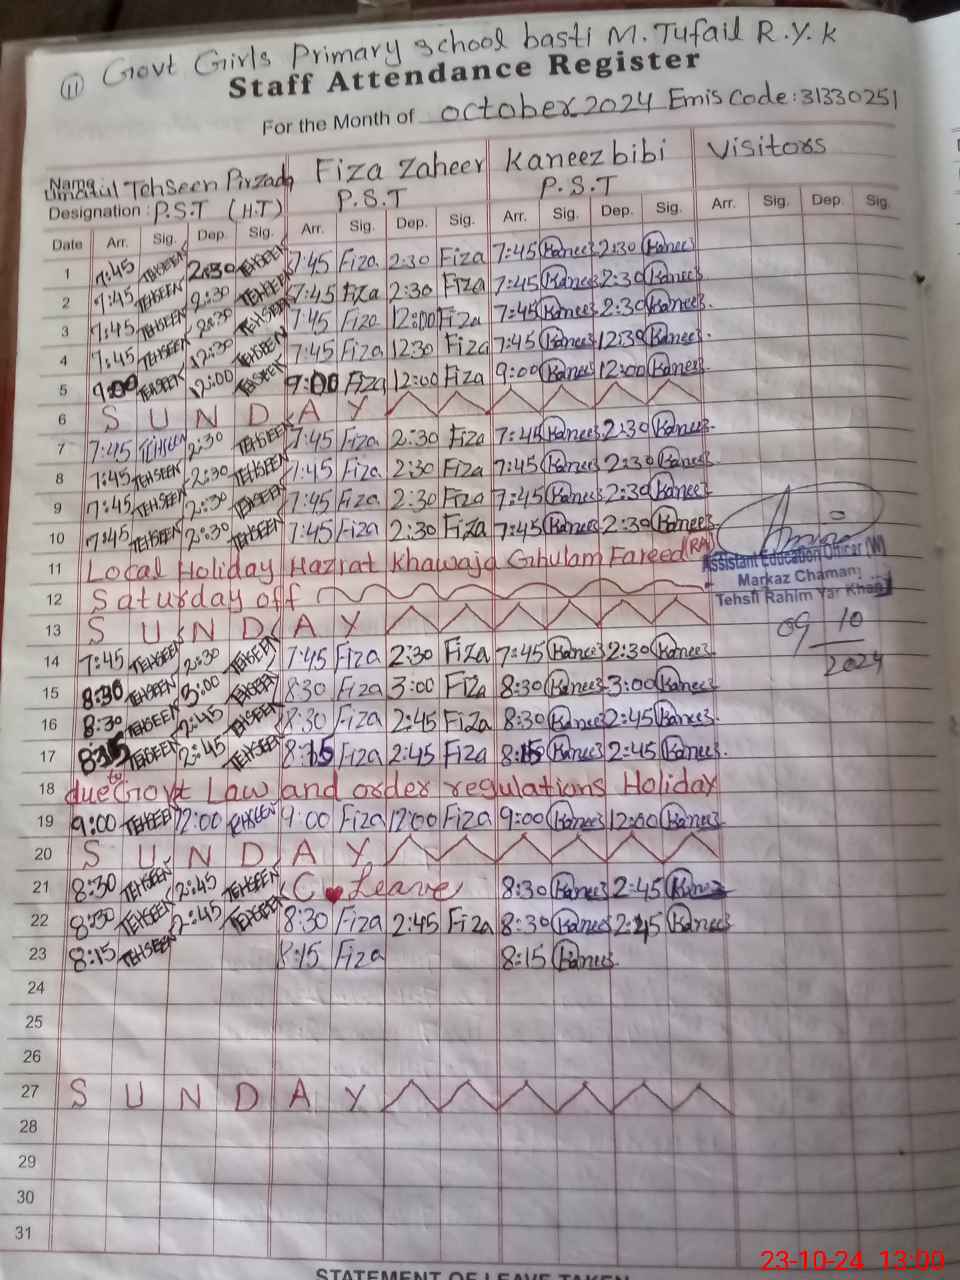 11 Govt Girls Primary school basti M. Tufail R.Y.k
Staff Attendance Register
For the Month of October 2024 Emis Code: 31330251
Name Tehseen Pirzada Fiza Zaheer Kaneez bibi Visitors
Designation: P.S.T (H.T) P.S.T P.S.T
Date Arr. Sig. Dep. Sig. Arr. Sig. Dep. Sig. Arr. Sig. Dep. Sig. Arr. Sig. Dep. Sig.
1 7:45 TEHSEEN 2:30 TEHSEEN 7:45 Fiza 2:30 Fiza 7:45 Kaneez 2:30 Kaneez
2 7:45 TEHSEEN 2:30 TEHSEEN 7:45 Fiza 2:30 Fiza 7:45 Kaneez 2:30 Kaneez
3 7:45 TEHSEEN 2:30 TEHSEEN 7:45 Fiza 12:00 Fiza 7:45 Kaneez 2:30 Kaneez
4 7:45 TEHSEEN 12:30 TEHSEEN 7:45 Fiza 12:30 Fiza 7:45 Kaneez 12:30 Kaneez
5 9:00 TEHSEEN 12:00 TEHSEEN 9:00 Fiza 12:00 Fiza 9:00 Kaneez 12:00 Kaneez
6 S U N D A Y
7 7:45 TEHSEEN 2:30 TEHSEEN 7:45 Fiza 2:30 Fiza 7:45 Kaneez 2:30 Kaneez
8 7:45 TEHSEEN 2:30 TEHSEEN 7:45 Fiza 2:30 Fiza 7:45 Kaneez 2:30 Kaneez
9 7:45 TEHSEEN 2:30 TEHSEEN 7:45 Fiza 2:30 Fiza 7:45 Kaneez 2:30 Kaneez
10 7:45 TEHSEEN 2:30 TEHSEEN 7:45 Fiza 2:30 Fiza 7:45 Kaneez 2:30 Kaneez
11 Local Holiday Hazrat Khawaja Ghulam Fareed (RA)
Assistant Education Officer (W)
Markaz Chaman
Tehsil Rahim Yar Khan
09 10 2024
12 Saturday off
13 S U N D A Y
14 7:45 TEHSEEN 2:30 TEHSEEN 7:45 Fiza 2:30 Fiza 7:45 Kaneez 2:30 Kaneez
15 8:30 TEHSEEN 3:00 TEHSEEN 8:30 Fiza 3:00 Fiza 8:30 Kaneez 3:00 Kaneez
16 8:30 TEHSEEN 2:45 TEHSEEN 8:30 Fiza 2:45 Fiza 8:30 Kaneez 2:45 Kaneez
17 8:15 TEHSEEN 2:45 TEHSEEN 8:15 Fiza 2:45 Fiza 8:15 Kaneez 2:45 Kaneez
18 due to Govt Law and order regulations Holiday
19 9:00 TEHSEEN 12:00 TEHSEEN 9:00 Fiza 12:00 Fiza 9:00 Kaneez 12:00 Kaneez
20 S U N D A Y
21 8:30 TEHSEEN 2:45 TEHSEEN C Leave 8:30 Kaneez 2:45 Kaneez
22 8:30 TEHSEEN 2:45 TEHSEEN 8:30 Fiza 2:45 Fiza 8:30 Kaneez 2:45 Kaneez
23 8:15 TEHSEEN 8:15 Fiza 8:15 Kaneez
24
25
26
27 S U N D A Y
28
29
30
31
23-10-24 13:00
STATEMENT OF LEAVE TAKEN